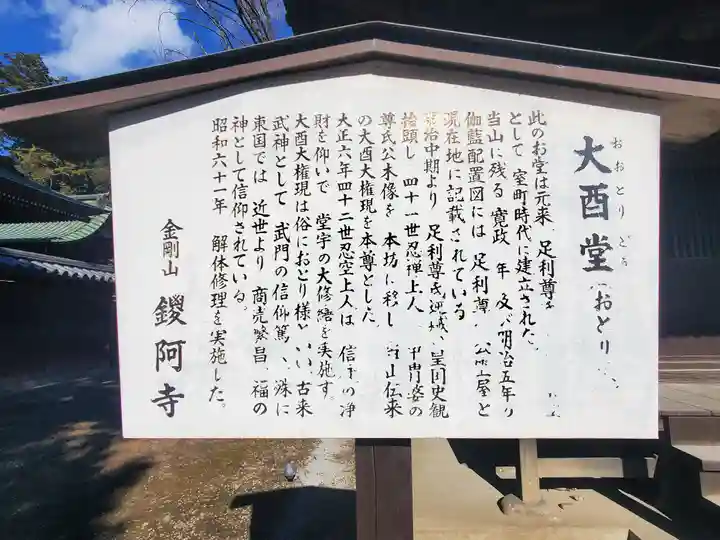 おおとり ど
大酉堂
おとり
此のお堂は元来、足利尊
として 室町時代に建立された。
当山に残る 寛政 年 及び明治五年
伽藍配置図には 足利尊 公 室と
現在地に記載されている
治中期より 足利尊氏逆 皇国史観
抬頭し 四十一世忍禅上人 甲冑姿の
尊氏公木像を 本坊に移し 当山伝来
の大酉大権現を本尊とした
大正六年四十二世忍空上人は 信 の浄
財を仰いで 堂宇の大修繕を実施す。
大酉大権現は俗におとり様と い 古来
武神として 武門の信仰篤 殊に
東国では 近世より 商売繁昌、福の
神として信仰されている。
昭和六十一年 解体修理を実施した。
金剛山 鑁阿寺